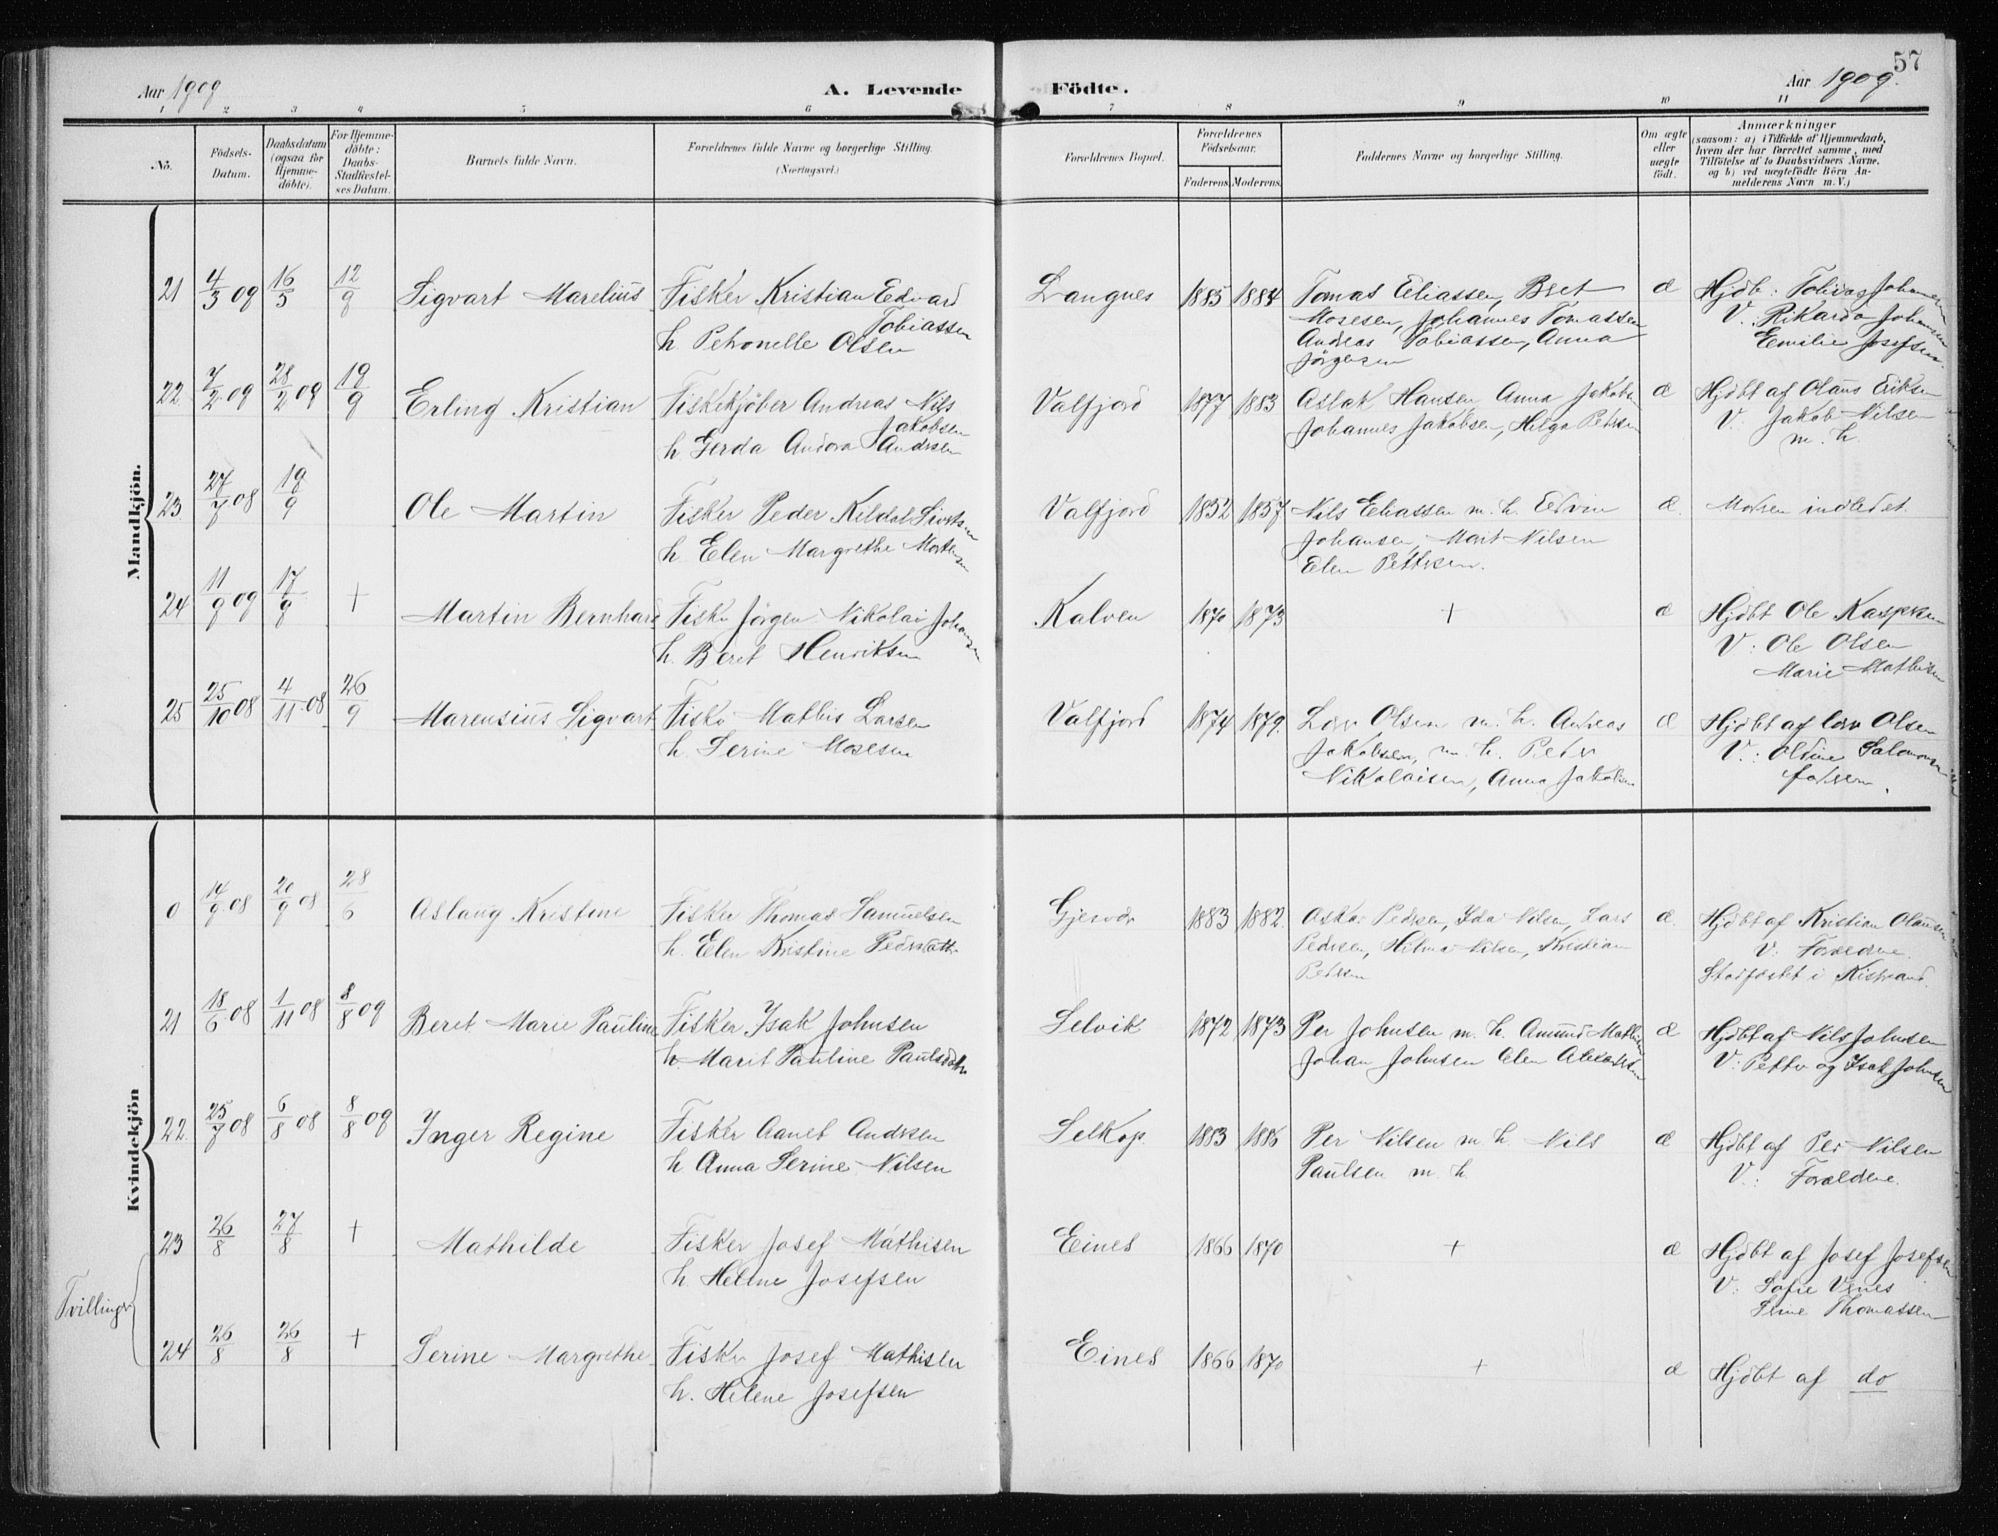 57
Aar 1909
A. Levende
Födte.
Aar 1909.
1 2 3 4 5 6 7 8 9 10 11
No.
Födsels-
Datum.
Daabsdatum
(ogsaa for
Hjemme-
döbte).
For Hjemme-
döbte:
Daabs-
Stadfæstel-
ses Datum.
Barnets fulde Navn.
Forældrenes fulde Navne og borgerlige Stilling.
(Næringsvei.)
Forældrenes Bopæl.
Forældrenes
Födselsaar.
Faderens. Moderens.
Faddernes Navne og borgerlige Stilling.
Om ægte
eller
uægte
födt.
Anmærkninger
(saasom: a) i Tilfælde af Hjemmedaab,
hvem der har forrettet samme, med
Tilföielse af to Daabsvidners Navne,
og b) ved uægtefödte Börn An-
melderens Navn m. V.)
Mandkjön.
21 4/3 09 16/5 12/9 Sigvart Marelius Fisker Kristian Edvard
Tobiassen
h Petronelle Olsen
Langnes 1885 1884 Tomas Eliassen, Bret
Mosesen, Johannes Tomassen
Andreas Tobiassen, Anna
Jørgensen
æ Hjdb: Johansen
V: Rikarda Johansen
Emilie Josefsen.
22 7/2 09 28/2 09 19/9 Erling Kristian Fiskekjøber Andreas Nils
Jakobsen
h Gerda Andora Andrsen
Valfjord 1877 1883 Aslak Hansen Anna Jakobs
Johannes Jakobsen, Helga Petersen
æ Hjdbt af Olaus Eriksen
V: Jakob Nilsen
m. h.
23 27/7 08 19/9 Ole Martin Fisker Peder Kildal Sivertsen
h. Elen Margrethe Mortensen
Valfjord 1852 1857 Nils Eliassen m. h. Edvin
Johansen, Marit Nilsen
Elen Pettersen.
æ. Modren indledet.
24 11/9 09 17/9 + Martin Bernhard Fisker Jörgen Nikolai Johansen
h. Beret Henriksen
Kalven 1870 1873 + æ Hjdbt Ole Kaspersen
V: Ole Olsen
Marie Mathisen
25 25/10 08 4/11 08 26/9 Marensius Sigvart Fisker Mathis Larsen
h. Serine Mosesen
Valfjord 1874 1879. Olsen m. h. Andreas
Jakobsen, m. h. Peder
Nikolaisen, Anna Jakobsen
æ Hjdbt af Olsen
V: Oldine Salomonsen
fadren.
Kvindekjön
0 14/9 08 20/9 08 28/6 Aslaug Kristine Fisker Thomas Samuelsen
h. Elen Kristine Pedrsdatter
Gjesvær 1883 1882. Pedersen, Ida Nilsen, Lars
Pedersen, Hilma Nilsen, Kristian
Petersen
æ. Hjdbt af Kristian Olaussen
V: Forældrene.
Stadfæstet i Kistrand.
21 18/6 08 1/11 08 8/8 09 Beret Marie Pauline Fisker Isak Johnsen
h. Marit Pauline Paulsdatter
Selvik 1872 1873 Per Johnsen m. h. Amund Mathisen
Johan Johnsen Elen
æ Hjdbt af Nils Johnsen
V: Petter og Isak Johnsen
22. 25/7 08 6/8 08 8/8 09 Inger Regine Fisker Andrsen
h Anna Serine Nilsen
Selkop. 1883 1886 Per Nilsen m. h. Nils
Paulsen m. h
æ Hjdbt af Per Nilsen
V: Forældrene.
Tvillinger
23 26/8 27/8 + Mathilde Fisker Josef Mathisen
h. Helene Josefsen
Eines 1866 1870 + æ Hjdbt af Josef Josefsen
V: Sofie
Thomassen
24 26/8 26/8 + Serine Margrethe Fisker Josef Mathisen
h. Helene Josefsen
Eines 1866 1870 + æ Hjdbt af do